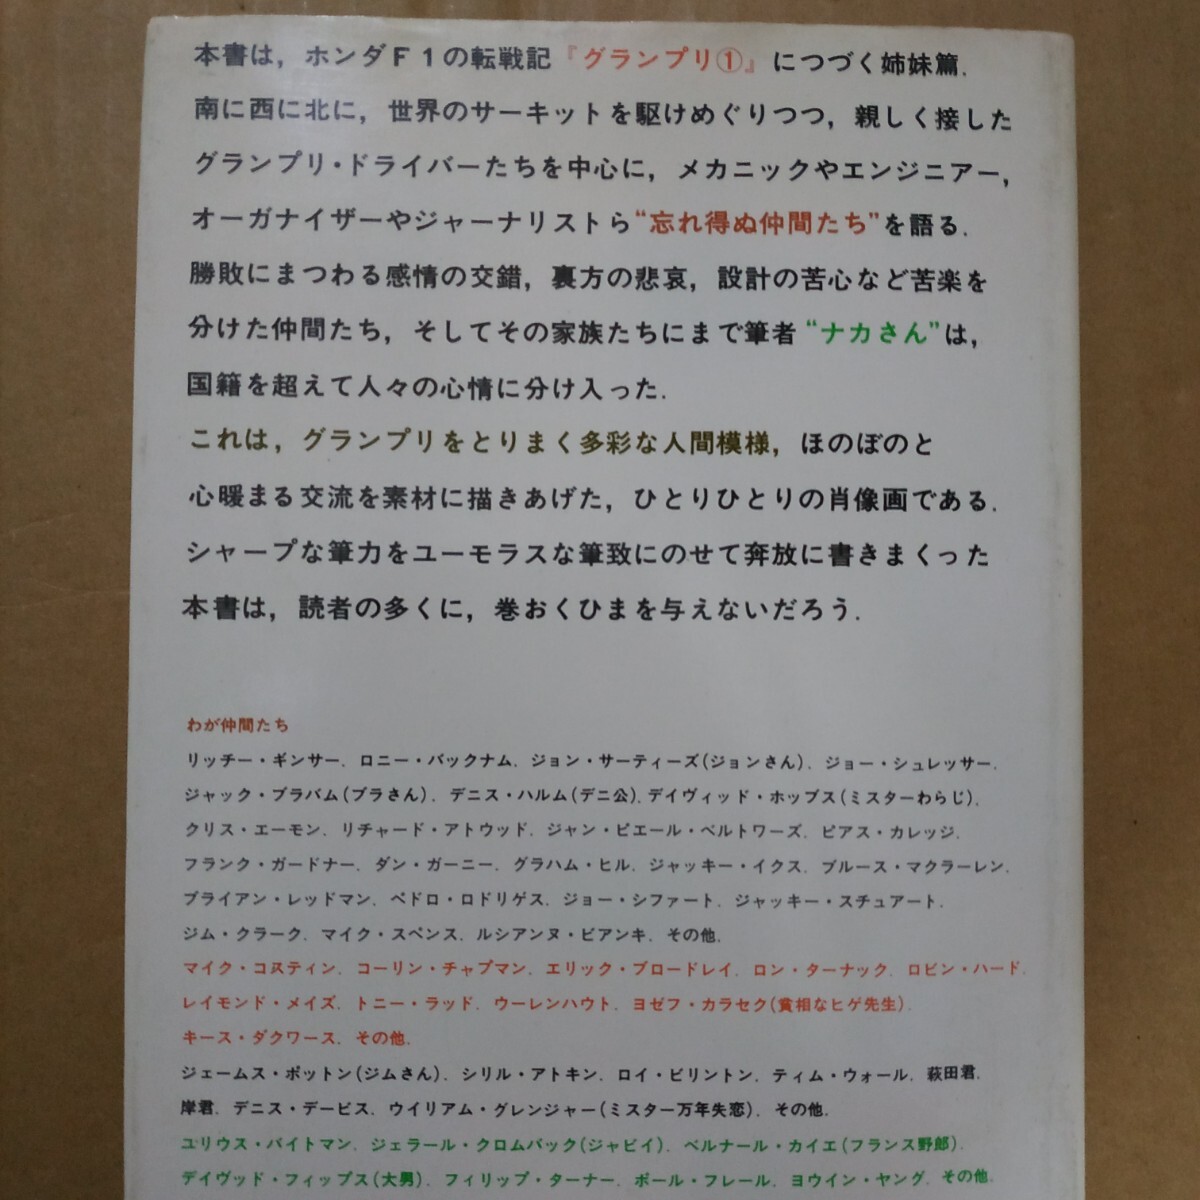 本書は，ホンダＦ１の転戦記『グランプリ①』につづく姉妹篇．
南に西に北に，世界のサーキットを駆けめぐりつつ，親しく接した
グランプリ・ドライバーたちを中心に，メカニックやエンジニアー，
オーガナイザーやジャーナリストら“忘れ得ぬ仲間たち”を語る．
勝敗にまつわる感情の交錯，裏方の悲哀，設計の苦心など苦楽を
分けた仲間たち，そしてその家族たちにまで筆者“ナカさん”は，
国籍を超えて人々の心情に分け入った．
これは，グランプリをとりまく多彩な人間模様，ほのぼのと
心暖まる交流を素材に描きあげた，ひとりひとりの肖像画である．
シャープな筆力をユーモラスな筆致にのせて奔放に書きまくった
本書は，読者の多くに，巻おくひまを与えないだろう．
わが仲間たち
リッチー・ギンサー．ロニー・バックナム．ジョン・サーティーズ(ジョンさん)．ジョー・シュレッサー．
ジャック・ブラバム(ブラさん)．デニス・ハルム(デニ公)．デイヴィッド・ホッブス(ミスターわらじ)．
クリス・エーモン．リチャード・アトウッド．ジャン・ピエール・ベルトワーズ．ピアス・カレッジ．
フランク・ガードナー．ダン・ガーニー．グラハム・ヒル．ジャッキー・イクス．ブルース・マクラーレン．
ブライアン・レッドマン．ペドロ・ロドリゲス．ジョー・シファート．ジャッキー・スチュアート．
ジム・クラーク．マイク・スペンス．ルシアンヌ・ビアンキ．その他．
マイク・コスティン．コーリン・チャプマン．エリック・ブロードレイ．ロン・ターナック．ロビン・ハード．
レイモンド・メイズ．トニー・ラッド．ウーレンハウト．ヨゼフ・カラセク(貧相なヒゲ先生)．
キース・ダクワース．その他．
ジェームス・ポットン(ジムさん)．シリル・アトキン．ロイ・ビリントン．ティム・ウォール．萩田君．
岸君．デニス・デービス．ウイリアム・グレンジャー(ミスター万年失恋)．その他．
ユリウス・バイトマン．ジェラール・クロムバック(ジャビイ)．ベルナール・カイエ(フランス野郎)．
デイヴッド・フィップス(大男)．フィリップ・ターナー．ポール・フレール．ヨウイン・ヤング．その他．